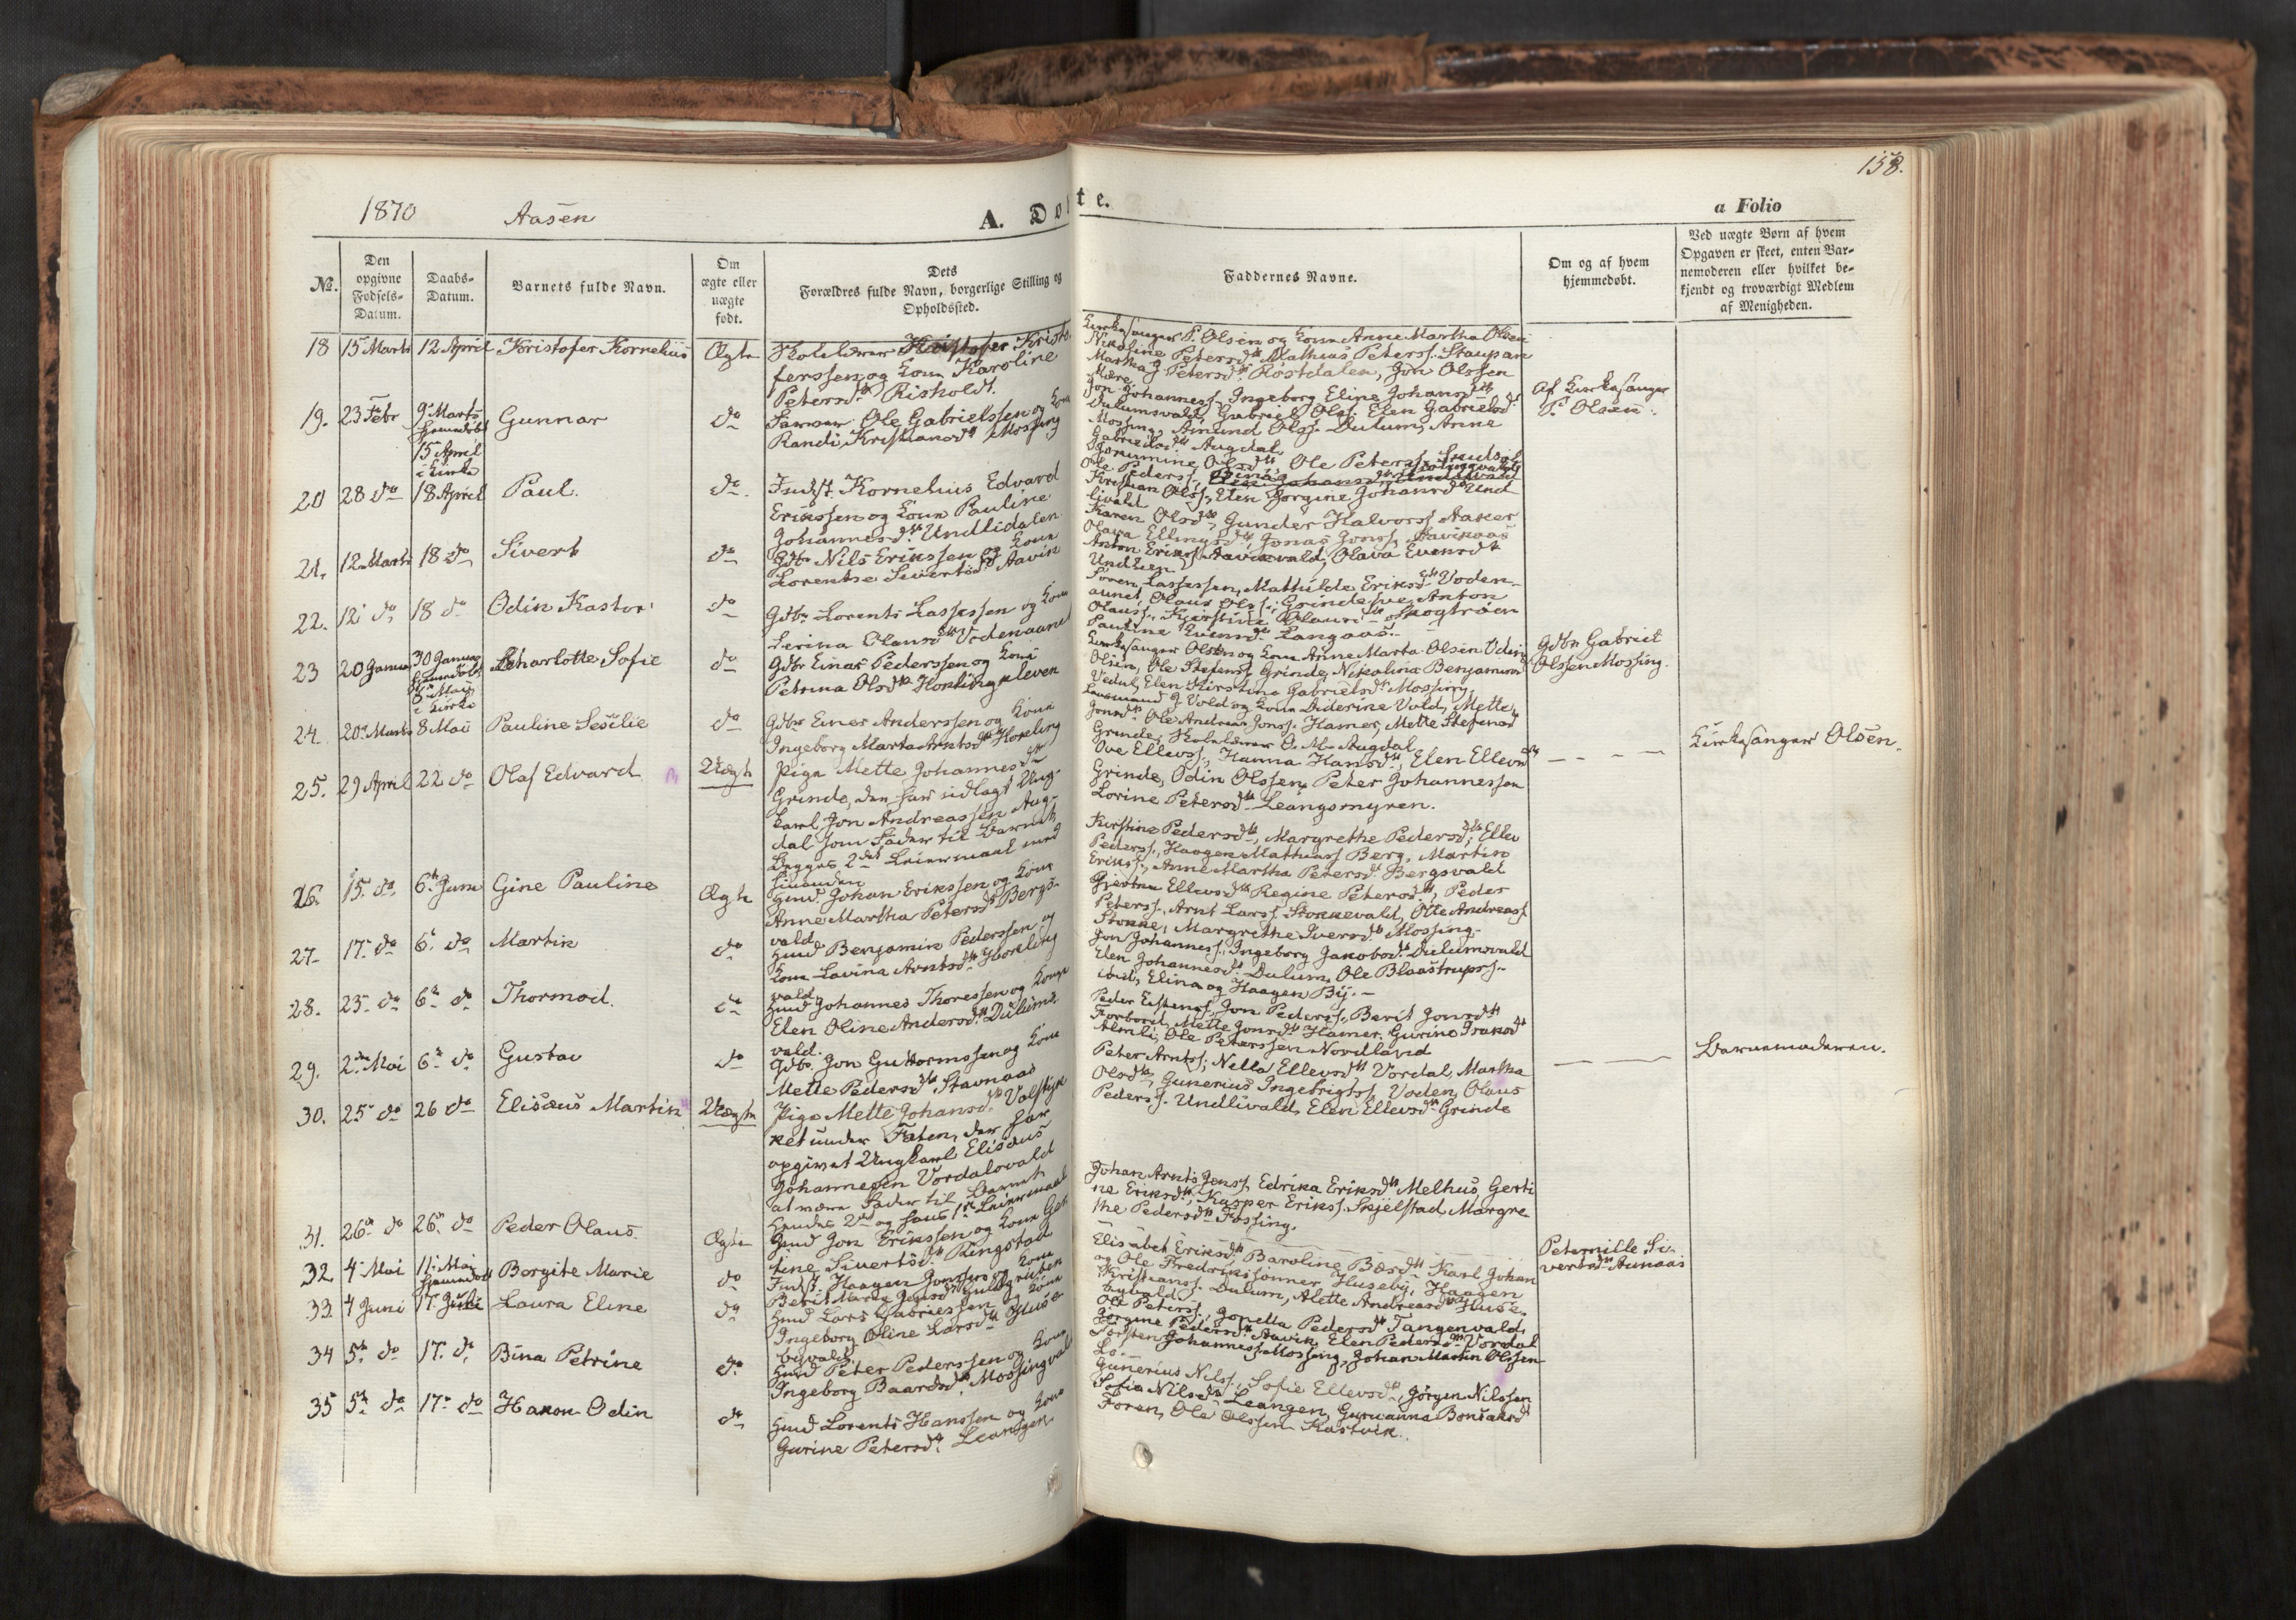 158.
1870 Aasen
A. Døbte.
a Folio
№.
Den opgivne Fødsels-Datum.
Daabs-Datum.
Barnets fulde Navn.
Om ægte eller uægte født.
Dets Forældres fulde Navn, borgerlige Stilling og Opholdssted.
Faddernes Navne.
Om og af hvem hjemmedøbt.
Ved uægte Børn af hvem Opgaven er skeet, enten Barnemoderen eller hvilket bekjendt og troværdigt Medlem af Menigheden.
18 15 Marts 12 April Kristofer Kornelius Ægte Skolelærer Kristofer Kristo
ferssen og Kone Karoline
Petersdtr Risholdt.
Kirkesanger P. Olsen og Kone Anne Martha Olsen
Nikoline Petersdtr Mathias Peterss. Staupan
Martha J Petersdtr Rostdalen, Jon Olssen
Mære
19. 23 Febr 9 Marts hjemmedøbt 15 April i Kirke Gunnar do Farver Ole Gabrielssen og Kone
Randi Kristiansdtr Mossing
Jon Johanness. Ingeborg Eline Johansdtr
Dulumsvald, Gabriel Olss. Elen Gabrielsdtr
Mossing, Amund Olss. Dulum, Anne
Gabrielsdtr Augdal
Af Kirkesanger
P. Olsen.
20 28 do 18 April Paul. do Indst. Kornelius Edvard
Erikssen og Kone Pauline
Johannesdtr Undlidalen
Olsdtr Ole Peterss.
Ole Pederss,
Kristian Olss, Elen Jørgine Johansdtr Und
livald
21. 12 Marts 18 do Sivert do Gdbr Nils Erikssen og Kone
Lorentse Sivertsdtr Aavik
Karen Olsdtr, Gunder Halvorss Aaker
Olava Ellingsdtr, Jonas Jonss, Aavikaas
Anton Erikss. Aavikvald, Olava Evensdtr
Undlien
22. 12 do 18 do Odin Kastor do Gdbr Lorents Lassessen og Kone
Serina Olausdtr Vodenaunet
Søren Lassessen, Mathilde Eriksdtr Voden-
aunet, Olaus Olss; Grindesve Anton
Olauss., Kjerstine Olausdtr Skogtrøen
Pauline Evensdtr Langaas.
23 20 Januar 30 Januar hjemmedøbt 8 Mai i Kirke Charlotte Sofie do Gdbr Einar Pederssen og Kone
Petrina Olsdtr Hoklingkleven
Kirkesanger Olsen og Kone Anne Marta Olsen Odin
Olsen, Ole Stefenss Grinde, Nikolina Benjamins
Vedul, Elen Kirstina Gabrielsdtr Mossing
Gdbr Gabriel
Olssen Mossing.
24. 20 Marts 8 Mai Pauline Sesilie do Gdbr Einer Anderssen og Kone
Ingeborg Marta Arntsdtr Hokling
Lensmand J Vold og Kone Diderine Vold, Mette
Jonsdtr Ole Andreas Jonss. Hamer, Mette Stefensdtr
Grinde, Skolelærer O. M. Augdal
25. 29 April 22 do Olaf Edvard Uægte Pige Mette Johannesdtr
Grinde, den har udlagt Ung-
karl Jon Andreassen Aug-
dal som Fader til Barnet
Begges 2det Leiermaal med
hinanden
Ove Ellevss., Hanna Hansdtr, Elen Ellevsdtr
Grinde, Odin Olssen, Peter Johannessen
Lorine Petersdtr Leangsmyren.
Kirkesanger Olsen.
26. 15 do, 6te Juni Gine Pauline Ægte Hmd. Johan Erikssen og Kone
Anne Martha Petersdtr Bergs-
vald
Kirstine Pedersdtr, Margrethe Pedersdtr, Ellev
Pederss., Haagen Mathiass Berg, Martin
Erikss., Anne Martha Petersdtr Bergsvald
27. 17 do 6te do Martin do Hmd Benjamin Pederssen og
Kone Lavina Arntsdtr Hokling
vald.
Gjertru Ellevsdtr Regine Petersdtr, Peder
Peterss., Arnt Larss. Stokkevald, Otte Andreass
Stokke, Margrethe Iversdtr Mossing.
28. 23 do 6te do Thormod. do Hmd Johannes Thoressen og Kone
Elen Oline Andersdtr Dulums
vald.
Jon Johanness., Ingeborg Jakobsdtr Dulumsvald
Elen Johannesdtr Dulum, Ole Blaastrupss
ibid, Elina og Haagen By. -
29. 2den Mai 6te do Gustav do Gdbr. Jon Guttormssen og Kone
Mette Pedersdtr Stavnaas
Peder Estenss, Jon Pederss, Berit Jonsdtr
Forbord, Mette Jonsdtr Hamer, Gurine Isaksdtr
Almli, Ole Peterssen Nordland
30. 25 do 26 do Elisæus Martin Uægte Pige Mette Johansdtr Valstyk
ket under Faten, der har
opgivet Ungkarl Elisæus
Johannessen Vordalsvald
at være Fader til Barnet
Hendes 2det og hans 1ste Leiermaal
Peter Arntss; Nella Ellevsdtr Vordal, Martha
Olsdtr, Gunerius Ingebrigtss, Voden, Olaus
Pederss. Undlivald, Elen Ellevsdtr Grinde
Barnemoderen.
31. 26de do 26de do Peder Olaus Ægte Hmd Jon Erikssen og Kone Ger
tine Sivertsdtr Ringstad
Johan Arnts Jenss, Edrika Eriksdtr Melhus, Gerti
ne Eriksdtr, Kasper Erikss. Skjelstad Margre
the Pedersdtr Fossing.
32. 4 Mai 11 Mai hjemmedøbt Borgite Marie do Indst. Haagen Jonssen og Kone
Berit Marta Jonsdtr Guldgruben
Elisabet Eriksdtr Baroline Bærdtr Karl Johan
og Ole Fredrikssønner, Huseby, Haagen
Kristianss. Dulum, Alette Andreasdtr Huse
byvald
Peternille Si-
vertsdtr Aunaas
33. 4 Juni 17 Juli Laura Eline do Hmd Lars Gabrielssen og Kone
Ingeborg Oline Larsdtr Huse
byvald
Ole Peterss, Jonetta Pedersdtr Tangenvald,
Jørgine Pedersdtr Aavik, Elen Pedersdtr Vordal
34 5te do 17 do, Bina Petrine do Hmd Peter Pederssen og Kone
Ingeborg Baardsdtr Mossingvald
Torsten Johanness Mossing, Johan Martin Olssen
Lo
35 5te do 17 do Hakon Odin do Hmd Lorents Hanssen og Kone
Gurine Petersdtr Leangen
Gunerius Nilss., Sofie Ellevsdtr, Jørgen Nilssen
Sofia Nilsdtr Leangen, Guruanna Bonsaksdtr
Foren, Ole Olssen Kastvik.